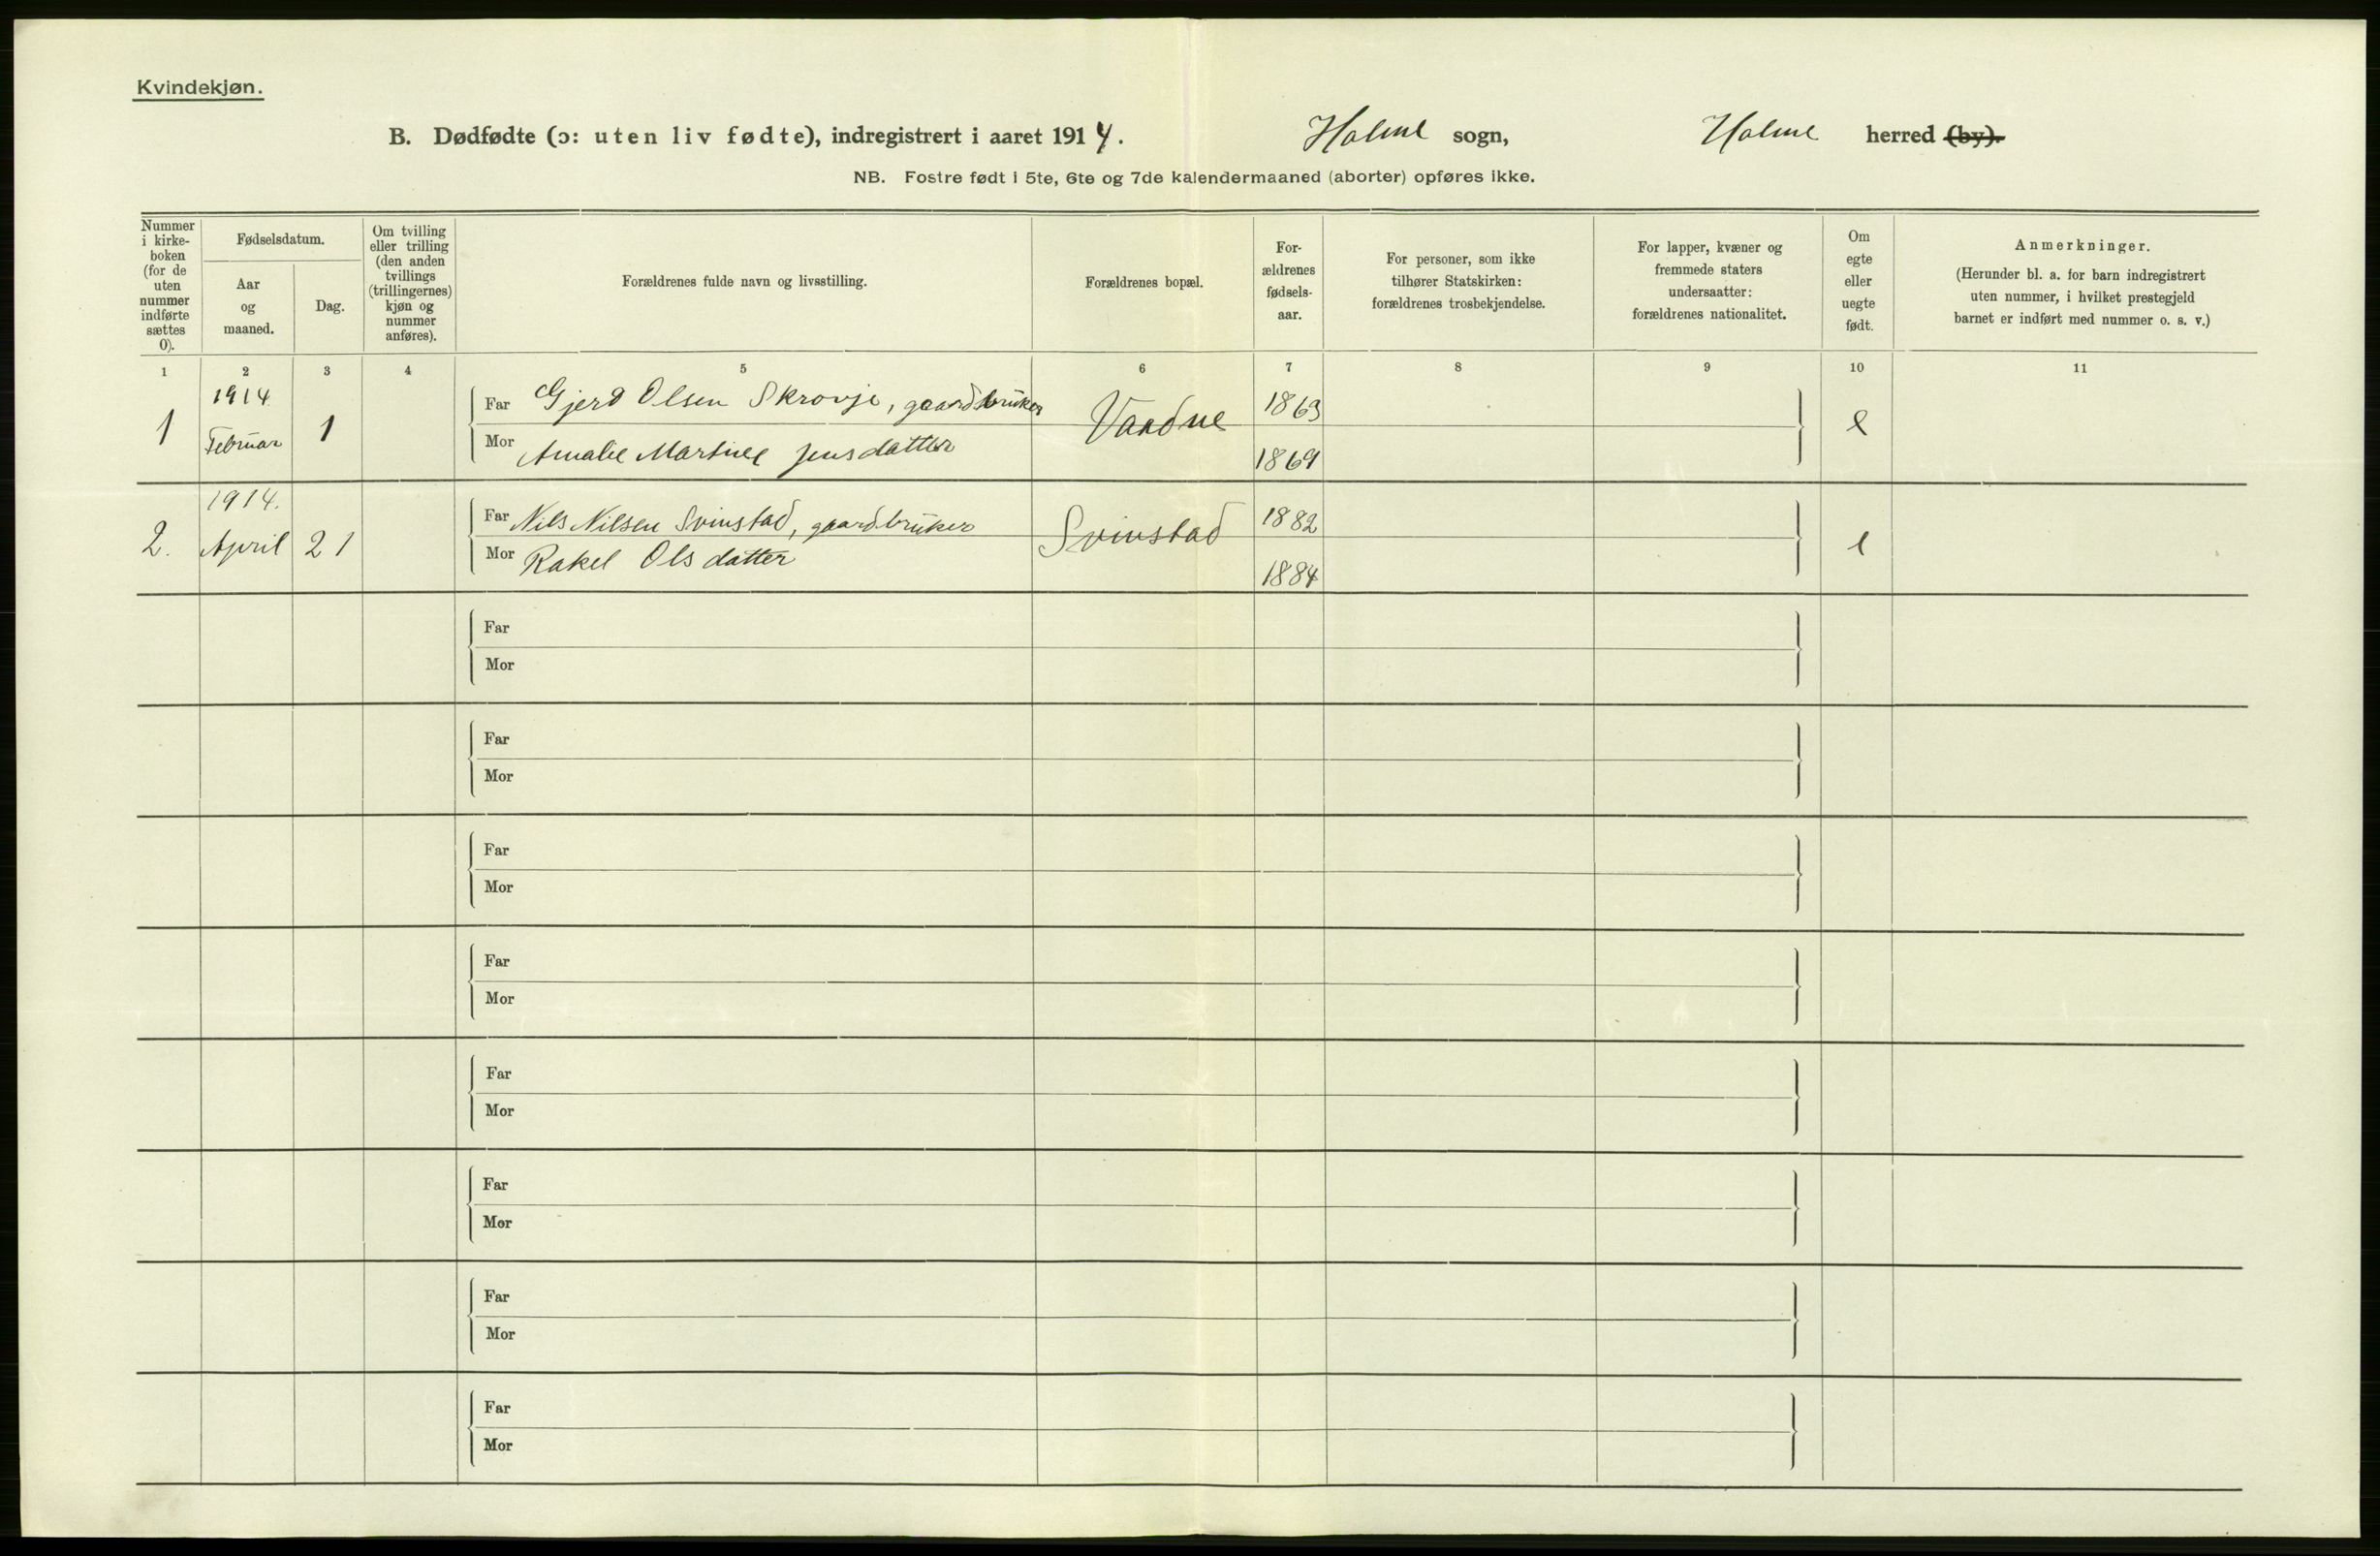 Kvindekjøn.
B. Dødfødte (ɔ: uten liv fødte), indregistrert i aaret 1914. Holme sogn, Holme herred (by).
NB. Fostre født i 5te, 6te og 7de kalendermaaned (aborter) opføres ikke.
Nummer i kirke-boken (for de uten nummer indførte sættes 0).
Fødselsdatum.
Aar og maaned.
Dag.
Om tvilling eller trilling (den anden tvillings (trillingernes) kjøn og nummer anføres).
Forældrenes fulde navn og livsstilling.
Forældrenes bopæl.
For-ældrenes fødsels-aar.
For personer, som ikke tilhører Statskirken: forældrenes trosbekjendelse.
For lapper, kvæner og fremmede staters undersaatter: forældrenes nationalitet.
Om egte eller uegte født.
Anmerkninger.
(Herunder bl. a. for barn indregistrert uten nummer, i hvilket prestegjeld barnet er indført med nummer o. s. v.)
1 2 3 4 5 6 7 8 9 10 11
1914
Far Gjerd Olsen Skrovje, gaardbruker 1863
1 Februar 1 Vandne e
Mor Amalie Martine Jensdatter 1869
1914.
Far Nils Nilsen Svinstad, gaardbruker 1882
2. April 21 Svinstad e
Mor Rakel Olsdatter 1884
Far
Mor
Far
Mor
Far
Mor
Far
Mor
Far
Mor
Far
Mor
Far
Mor
Far
Mor